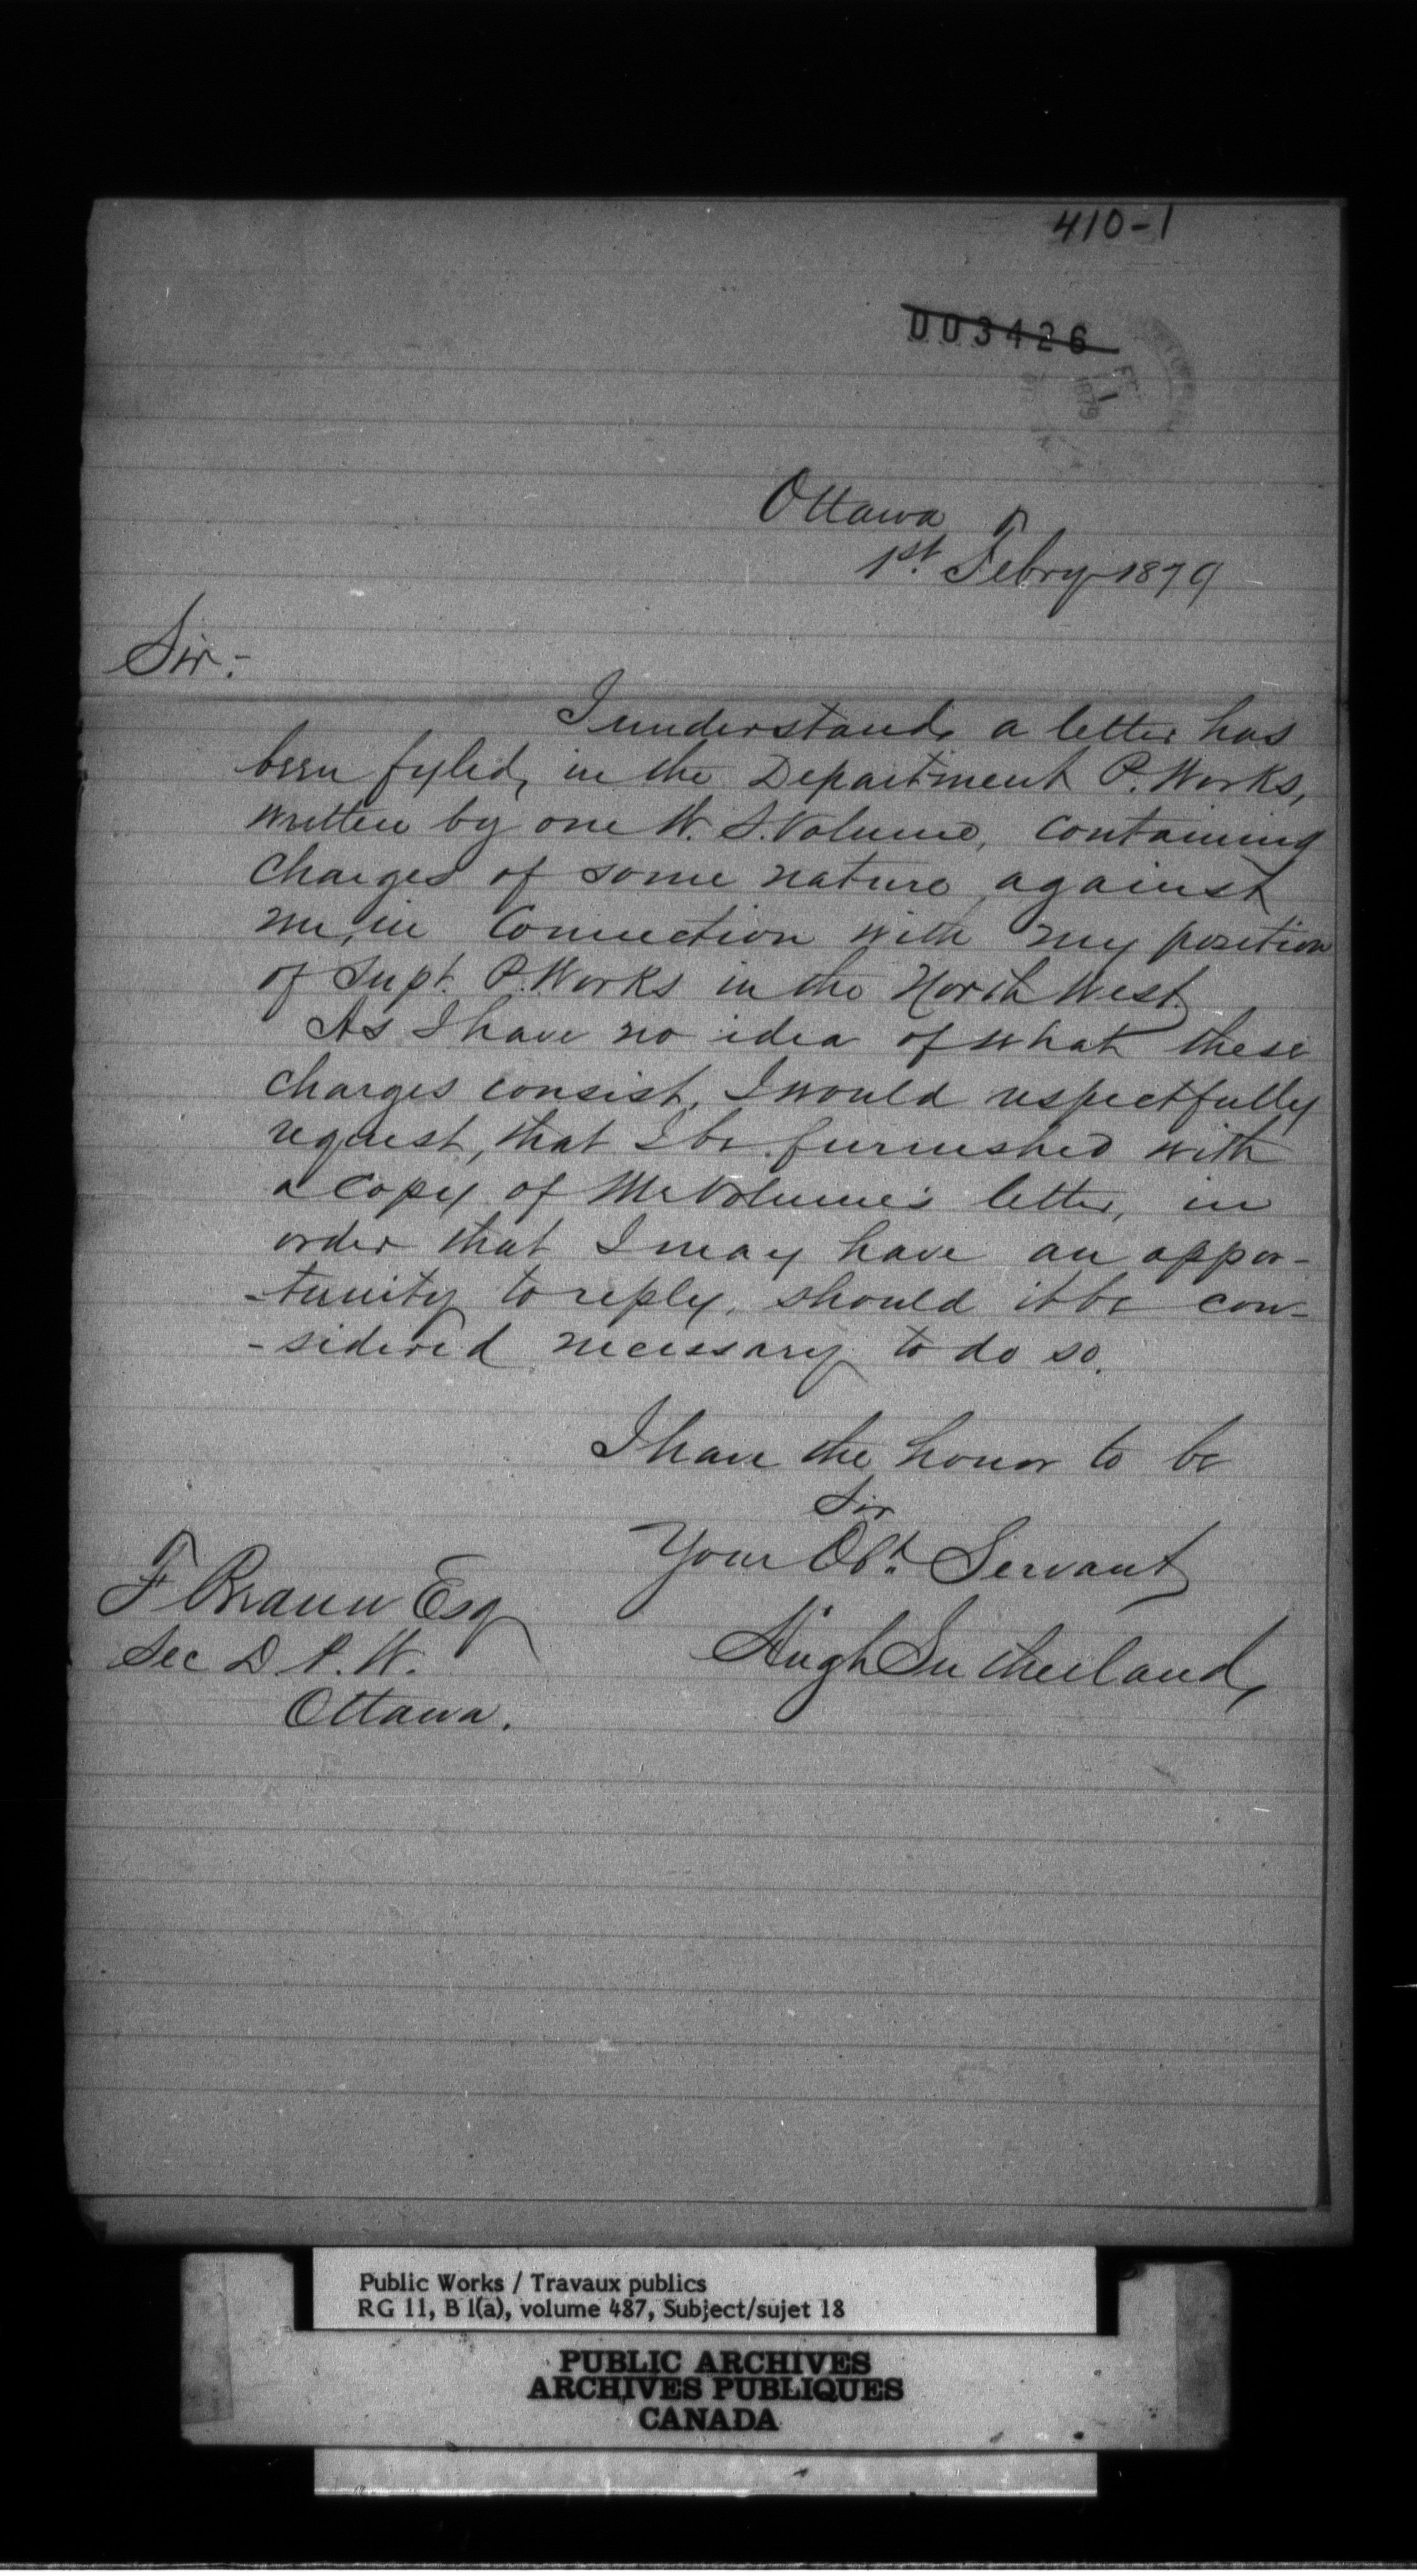 410-1
003426
1879
Ottawa
1st. Febry 1879
Sir:-
I understand, a letter has
been fyled, in the Department P. Works,
written by one W. S. Volume, containing
charges of some nature, against
me, in Connection with my position
of Supt. P. Works in the North West
As I have no idea of what these
charges consist, I would respectfully
request, that I be furnished with
a copy of Mr Volume's letter, in
order that I may have an oppor-
-tunity to reply, should it be con-
-sidered necessary to do so.
I have the honor to be
Sir
Your Obt. Servant
F Braun Esq
Hugh Sutherland,
Sec D P. W.
Ottawa.
Public Works / Travaux publics
RG 11, B 1(a), volume 487, Subject/sujet 18
PUBLIC ARCHIVES
ARCHIVES PUBLIQUES
CANADA